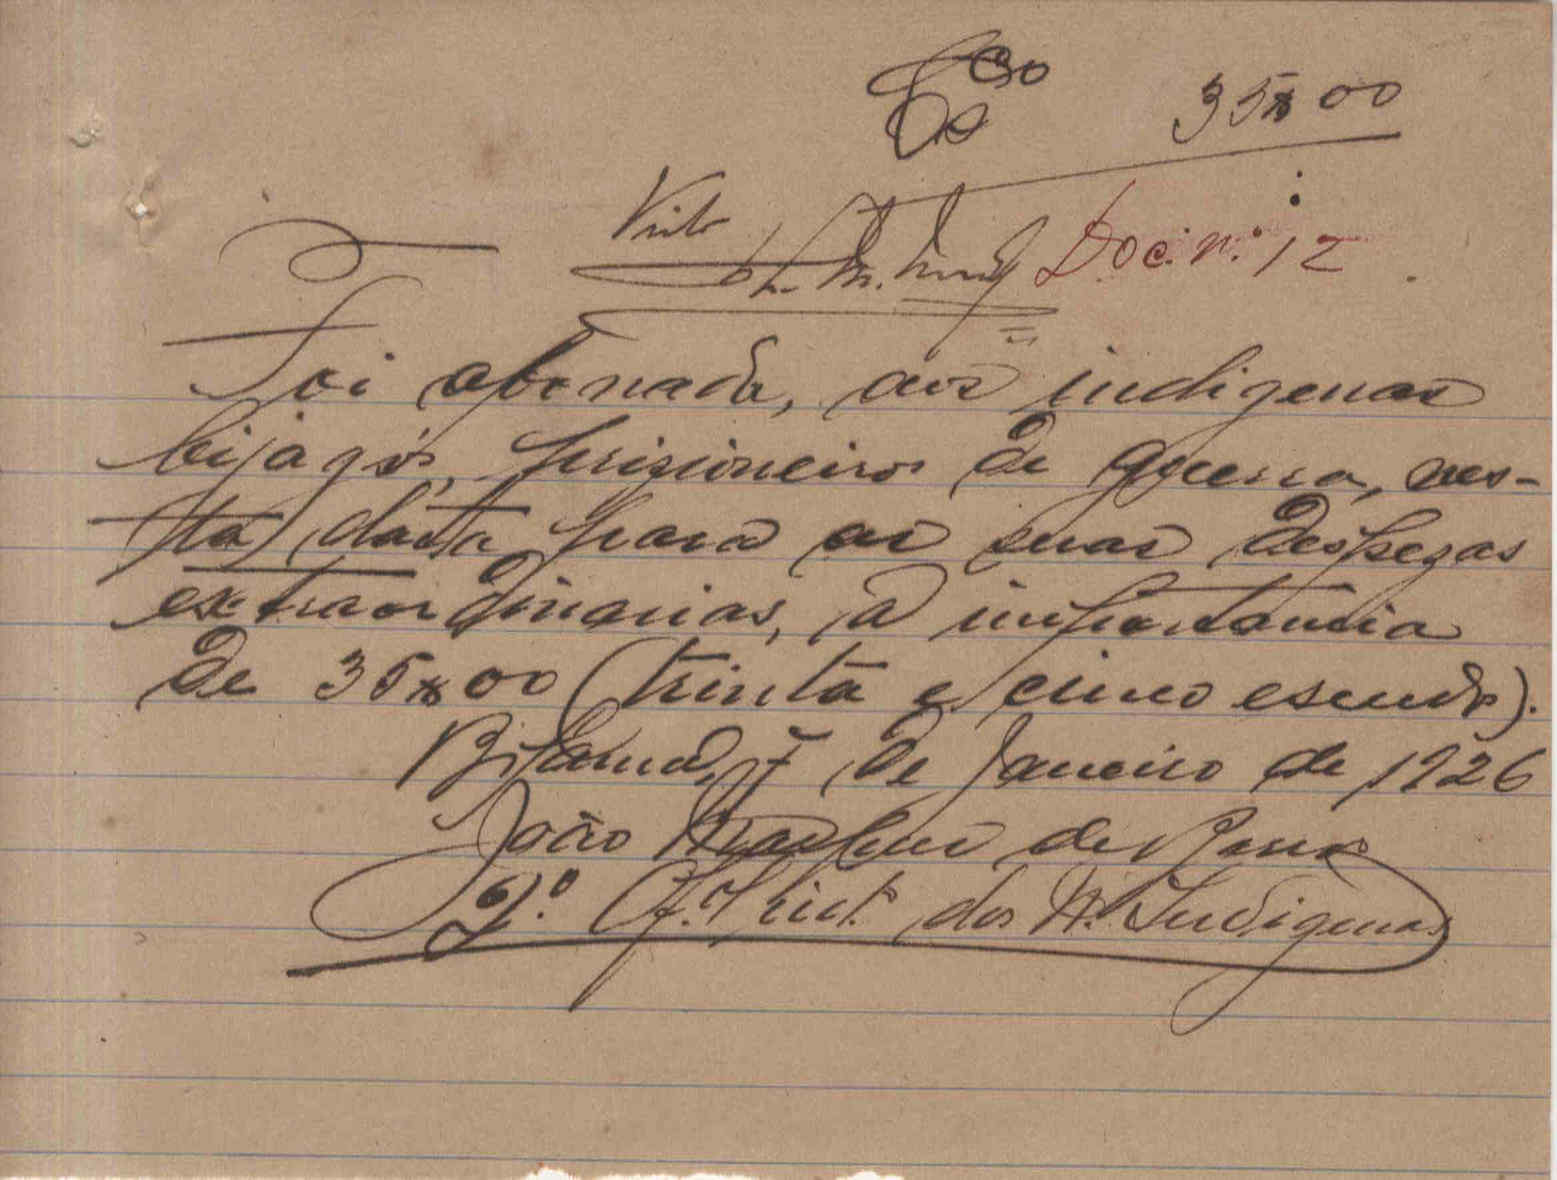 35$00
Visto
Doc. n.º 12
Foi abonada, aos indigenas
bijagós, prisioneiros de guerra, nes-
ta data para as suas despezas
extraordinarias, a importancia
de 35$00 (trinta e cinco escudos).
Bolama, 7 de Janeiro de 1926
João de
2.º dos N. Indigenas